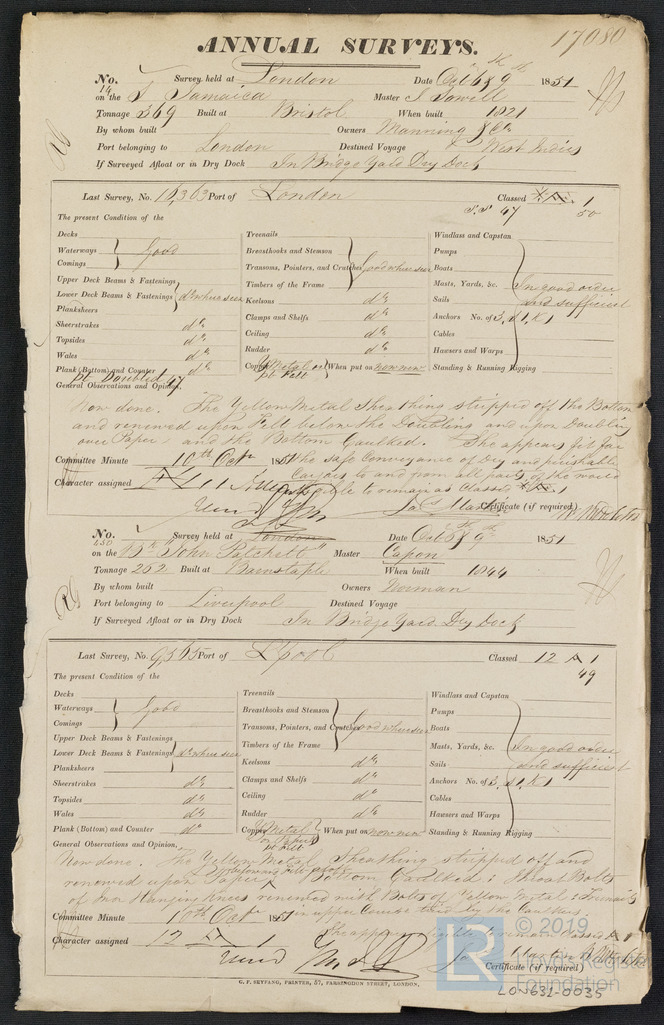 17080
ANNUAL SURVEYS.
No. 14 Survey held at London Date Oct 6 & 9 1851
on the S Jamaica Master J.
Tonnage 369 Built at Bristol When built 1821
By whom built Owners Manning & Co
Port belonging to London Destined Voyage West Indies
If Surveyed Afloat or in Dry Dock In Bridge Yard Dry Dock
Last Survey, No. Port of London Classed 1
47 50
The present Condition of the
Decks
Waterways Good
Comings
Upper Deck Beams & Fastenings
Lower Deck Beams & Fastenings do where seen
Planksheers
Sheerstrakes do
Topsides do
Wales do
Plank (Bottom) and Counter do
pt. Doubled 47
Treenails
Breasthooks and Stemson
Transoms, Pointers, and Crutches Good where seen
Timbers of the Frame
Keelsons do
Clamps and Shelfs do
Ceiling do
Rudder do
Copper Y Metal on pt Felt When put on now new
Windlass and Capstan
Pumps
Boats
Masts, Yards, &c. In good order
Sails and sufficient
Anchors No. of 3, S1, K1
Cables
Hawsers and Warps
Standing & Running Rigging
General Observations and Opinion,
Now done. The Yellow Metal Sheathing stripped off the Bottom
and renewed upon Felt below the Doubling and upon Doubling
over Paper, and the Bottom Caulked. She appears fit for
Committee Minute 10th Octr 1851 the safe Conveyance of Dry and perishable
Cargoes to and from all parts of the world
Character assigned eligible to remain as Classed
Certificate (if required)
No. 450 Survey held at London Date Oct 8 & 9th 1851
on the Bk "John Patchett" Master Capon
Tonnage 252 Built at Barnstaple When built 1844
By whom built Owners Norman
Port belonging to Liverpool Destined Voyage
If Surveyed Afloat or in Dry Dock In Bridge Yard Dry Dock
Last Survey, No. 9565 Port of L'pool Classed 12 A 1
49
The present Condition of the
Decks
Waterways Good
Comings
Upper Deck Beams & Fastenings
Lower Deck Beams & Fastenings do where seen
Planksheers
Sheerstrakes do
Topsides do
Wales do
Plank (Bottom) and Counter do
Treenails
Breasthooks and Stemson
Transoms, Pointers, and Crutches Good where seen
Timbers of the Frame
Keelsons do
Clamps and Shelfs do
Ceiling do
Rudder do
Copper Y Metal on Paper When put on now new
Windlass and Capstan
Pumps
Boats
Masts, Yards, &c. In good order
Sails and sufficient
Anchors No. of 3, S1, K1
Cables
Hawsers and Warps
Standing & Running Rigging
General Observations and Opinion,
Now done. The Yellow Metal Sheathing stripped off and
renewed upon Paper, Bottom Caulked: Throat Bolts
of Iron Hanging Knees renewed with Bolts of Yellow Metal: Treenails
Committee Minute 10th Octr 1851 in upper Course
Character assigned 12 A 1 She appears eligible to remain as Classed
Certificate (if required)
G. F. SEYFANG, PRINTER, 57, FARRINGDON STREET, LONDON.
LR © 2019
Lloyd's Register
Foundation
LON631-0035